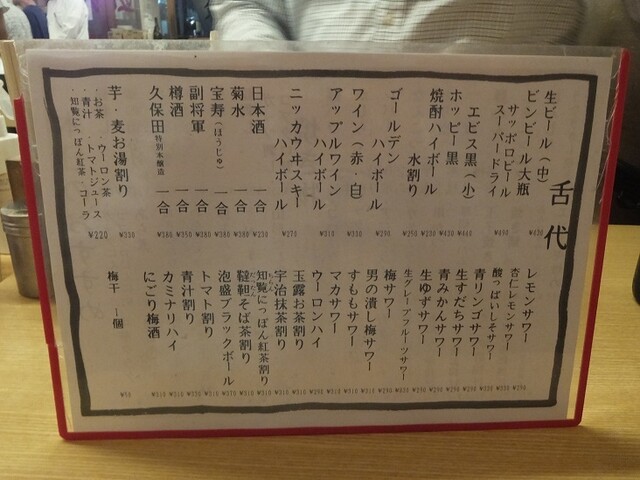 舌代
生ビール（中） ¥430
ビンビール大瓶
サッポロビール
スーパードライ ¥490
エビス黒（小） ¥440
ホッピー黒 ¥430
焼酎ハイボール ¥230
水割り ¥250
ゴールデン
ハイボール ¥270
ワイン（赤・白） ¥330
アップルワイン
ハイボール ¥310
ニッカウヰスキー
ハイボール ¥270
日本酒 一合 ¥230
菊水 一合 ¥390
宝寿（ほうじゅ） 一合 ¥380
副将軍 一合 ¥380
樽酒 一合 ¥350
久保田 特別本醸造 一合 ¥380
芋・麦お湯割り ¥330
・お茶 ウーロン茶
・青汁 トマトジュース
・知覧にっぽん紅茶・コーラ ¥220
レモンサワー ¥290
杏仁レモンサワー
酸っぱいしそサワー
青リンゴサワー ¥290
生すだちサワー ¥290
青みかんサワー ¥290
生ゆずサワー ¥290
生グレープフルーツサワー
梅サワー ¥290
男の潰し梅サワー ¥310
すももサワー ¥310
マカサワー ¥310
ウーロンハイ ¥290
玉露お茶割り ¥310
宇治抹茶割り ¥310
知覧にっぽん紅茶割り ¥310
韃靼そば茶割り ¥310
泡盛ブラックボール ¥370
トマト割り ¥310
青汁割り ¥330
カミナリハイ ¥310
にごり梅酒 ¥310
梅干 一個 ¥50